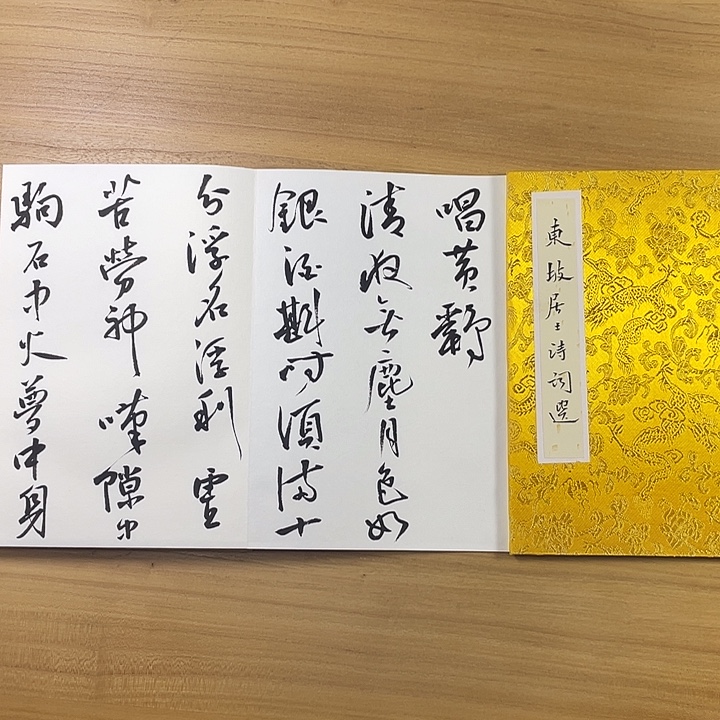 東坡居士詩詞選
唱黄鷄
清夜無塵月色如
銀酒斟時須滿十
分浮名浮利虚
苦勞神嘆隙中
駒石中火夢中身